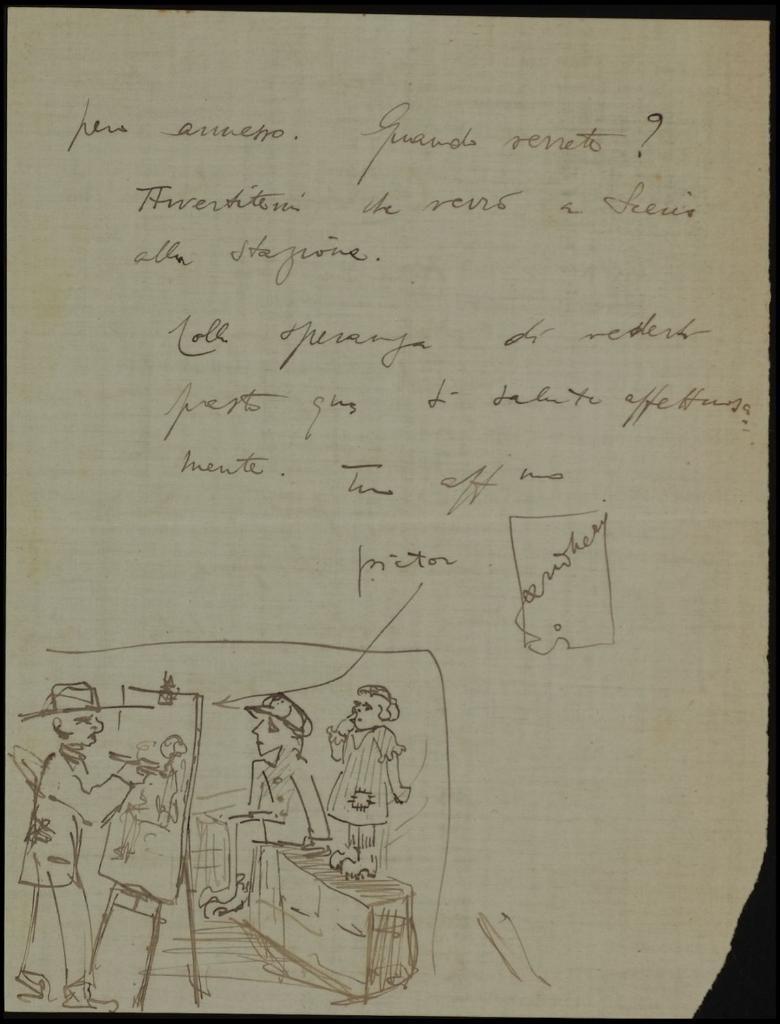 però annesso. Quando verrete?
Avvertitemi che verrò a
alla stazione.
Colla speranza di vederti
presto qui ti saluto affettuosa=
mente. Tuo aff mo
pictor